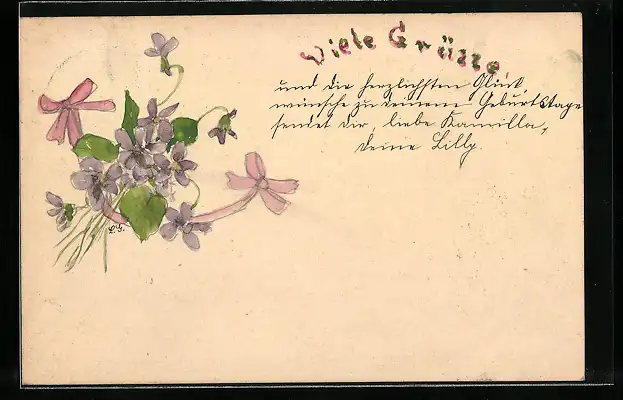 Viele Grüsse,
und die herzlichsten Glück,
wünsche zu deinem Geburtstage
sendet dir, liebe Kamilla,
deine Lilly.
L.G.